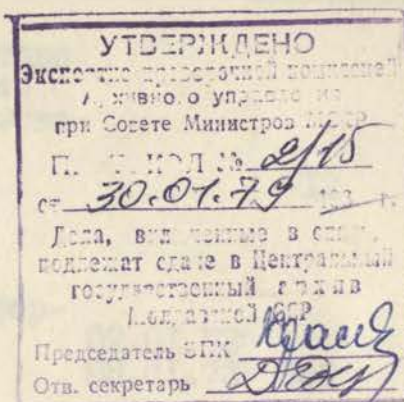 УТВЕРЖДЕНО
Экспертно проверочной комиссией
Архивного управления
при Совете Министров МССР
№ 2/15
от 30.01.79 г.
Дела, в
подлежат сдаче в Центральный
государственный архив
Молдавской ССР
Председатель ЭПК
Отв. секретарь